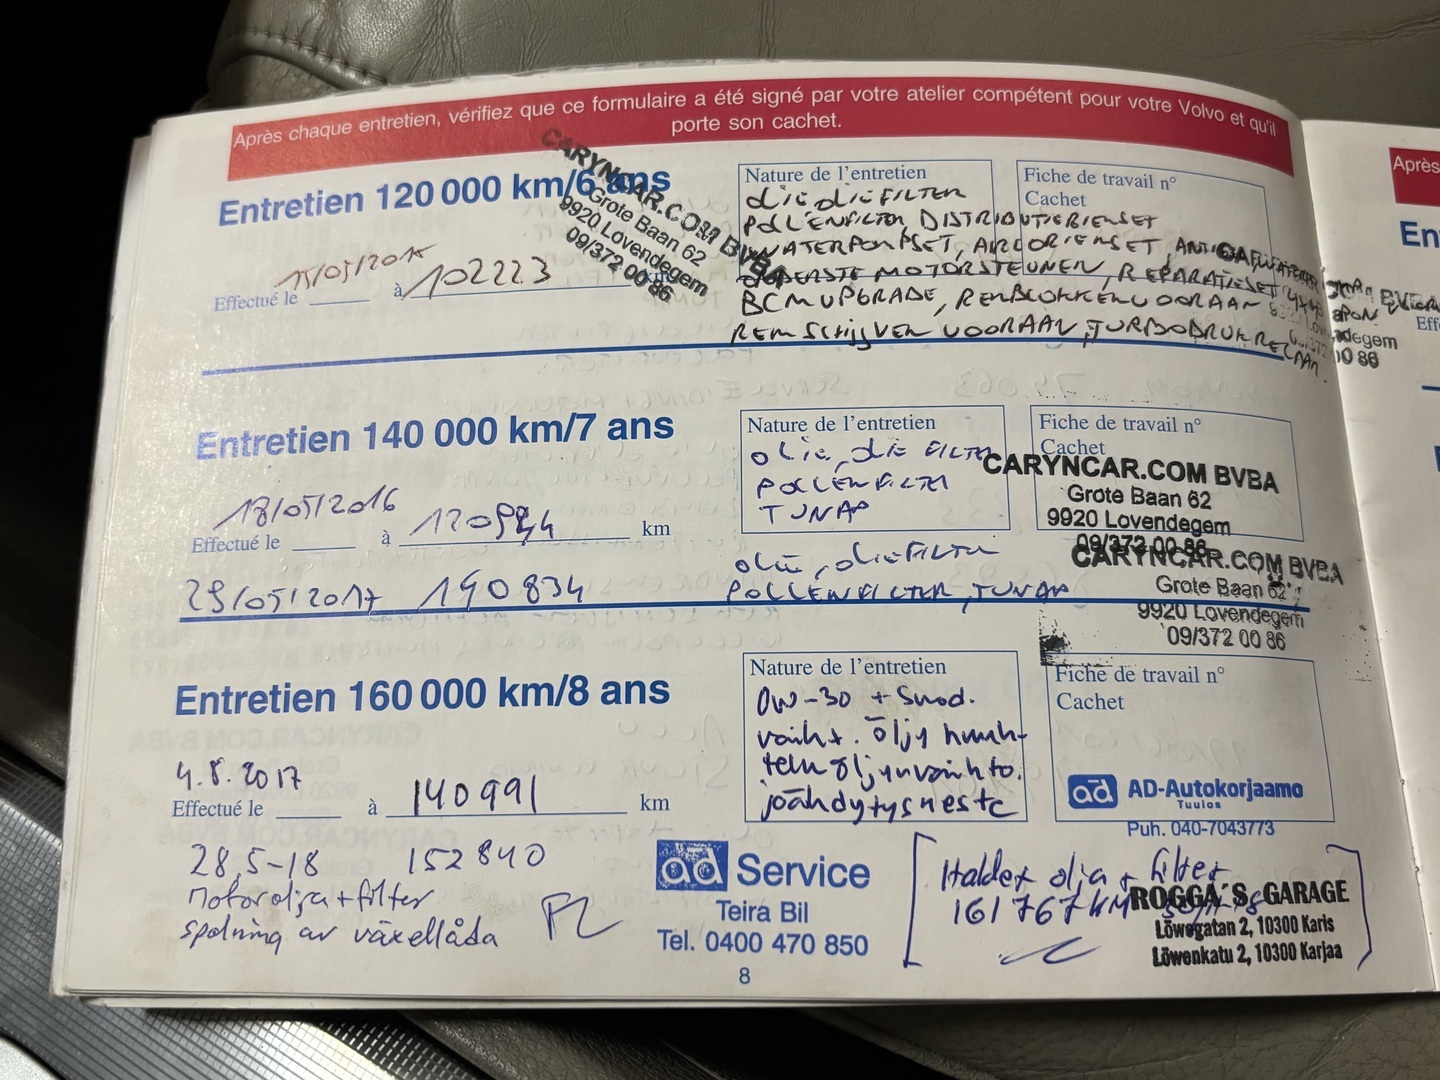 Après chaque entretien, vérifiez que ce formulaire a été signé par votre atelier compétent pour votre Volvo et qu'il
porte son cachet.
Entretien 120 000 km/6 ans
CARYNCAR.COM BVBA
Grote Baan 62
9920 Lovendegem
09/372 00 86
Effectué le 15/05/2015 à 102223
Nature de l'entretien
OLIE OLIEFILTER
POLLENFILTER, DISTRIBUTIERIEMSET
WATERPOMPSET, AIRCORIEMSET,
ONDERSTE MOTORSTEUNEN, REPARATIESET
BCM UPGRADE, REMBLOKKEN VOORAAN
REMSCHIJVEN VOORAAN, TURBODRUKREGELAAR
Fiche de travail n°
Cachet
Entretien 140 000 km/7 ans
Effectué le 18/05/2016 à km
Nature de l'entretien
OLIE, OLIE FILTER
POLLENFILTER
TUNAP
Fiche de travail n°
Cachet
CARYNCAR.COM BVBA
Grote Baan 62
9920 Lovendegem
09/372 00 86
29/05/2017 140834
OLIE, OLIEFILTER
POLLENFILTER, TUNAP
CARYNCAR.COM BVBA
Grote Baan 62
9920 Lovendegem
09/372 00 86
Entretien 160 000 km/8 ans
Effectué le 4.8.2017 à 140991 km
Nature de l'entretien
0W-30 + Suod.
vaiht. Öljy
öljynvaihto.
jäähdytysneste
Fiche de travail n°
Cachet
ad AD-Autokorjaamo
Tuulos
Puh. 040-7043773
28,5-18 152840
motorolja+filter
spolning av växellåda
ad Service
Teira Bil
Tel. 0400 470 850
Haldex olja + filter
161767KM
ROGGA´S GARAGE
Löwegatan 2, 10300 Karis
Löwenkatu 2, 10300 Karjaa
8
Après